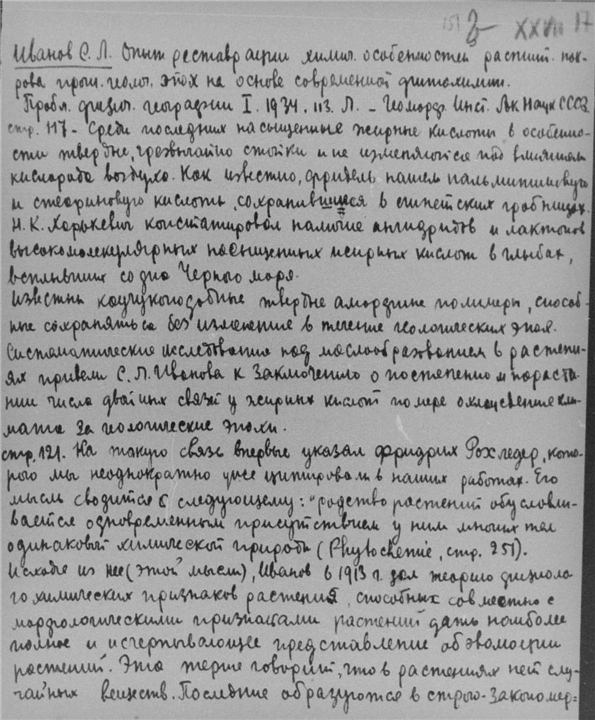 151 3 XXVII 17
Иванов С. Л. Опыт реставрации химич. особенностей растит. пок-
рова прош. геолог. эпох на основе современной фитохимии.
Пробл. физич. географии I. 1934. 113. Л. – Геоморф. Инст. Ак Наук СССР
стр. 117 – Среди последних насыщенные жирные кислоты в особенно-
сти твердые, чрезвычайно стойки и не изменяются под влиянием
кислорода воздуха. Как известно, Фридель нашел пальмитиновую
и стеариновую кислоты, сохранившиеся в египетских гробницах.
Н. К. Харькевич констатировал наличие ангидридов и лактонов
высокомолекулярных насыщенных жирных кислот в глыбах,
всплывших со дна Черного моря.
Известны каучукоподобные твердые аморфные полимеры, способ-
ные сохраняться без изменение в течение геологических эпох.
Систематические исследования над маслообразованием в растени-
ях привели С. Л. Иванова к заключению о постепенном нараста-
нии числа двойных связей у жирных кислот по мере охлаждения кли-
мата за геологические эпохи.
стр. 121. На такую связь впервые указал Фридрих Рохледер, кото-
рого мы неоднократно уже цитировали в наших работах. Его
мысль сводится к следующему: "родство растений обусловли-
вается одновременным присутствием у них многих тел
одинаковой химической природы (Phytochemie, стр. 251).
Исходя из нее (этой мысли), Иванов в 1913 г. дал теорию физиоло
го химических признаков растений, способных совместно с
морфологическими признаками растений дать наиболее
полное и исчерпывающее представление об эволюции
растений. Эта теория говорит, что в растениях нет слу-
чайных веществ. Последние образуются в строго-закономер=